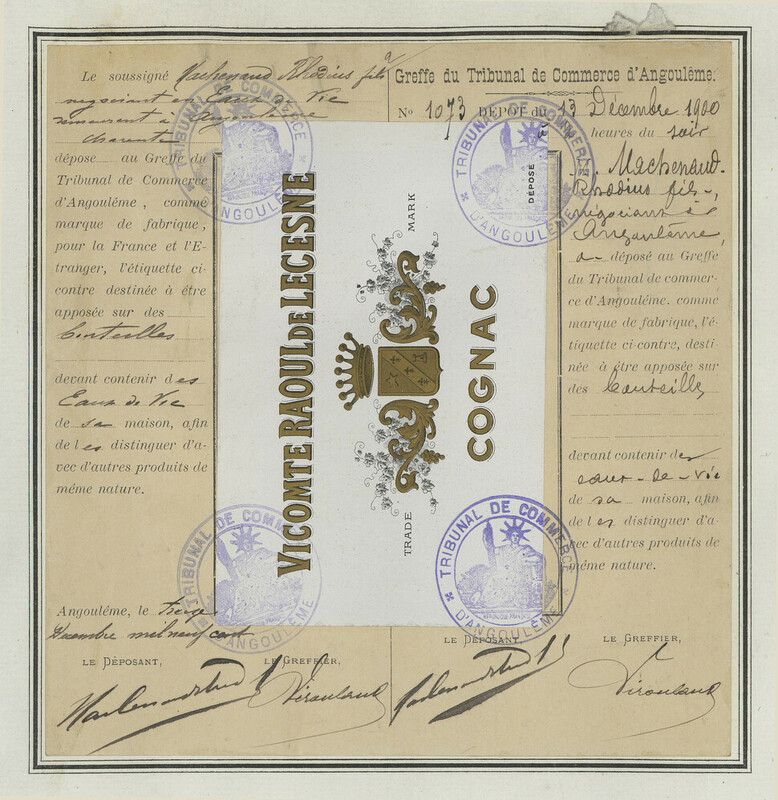 Le soussigné Machenaud Rhodius fils
négociant en Eaux de Vie
demeurant à Angoulême
Charente
dépose au Greffe du
Tribunal de Commerce
d'Angoulême, comme
marque de fabrique,
pour la France et l'E-
tranger, l'étiquette ci-
contre destinée à être
apposée sur des
bouteilles
devant contenir des
Eaux de Vie
de sa maison, afin
de les distinguer d'a-
vec d'autres produits de
même nature.
Angoulême, le treize
Décembre mil neuf cent
LE DÉPOSANT,
LE GREFFIER,
VICOMTE RAOUL DE LECESNE
TRADE MARK
COGNAC
DÉPOSÉ
TRIBUNAL DE COMMERCE
D'ANGOULÊME
TRIBUNAL DE COMMERCE
D'ANGOULÊME
TRIBUNAL DE COMMERCE
D'ANGOULÊME
TRIBUNAL DE COMMERCE
D'ANGOULÊME
Greffe du Tribunal de Commerce d'Angoulême.
No 1073 DÉPOT du 13 Décembre 1900
heures du soir
Machenaud-
Rhodius fils,
négociant à
Angoulême,
a déposé au Greffe
du Tribunal de commer-
ce d'Angoulême. comme
marque de fabrique, l'é-
tiquette ci-contre, desti-
née à être apposée sur
des bouteilles
devant contenir des
eaux-de-vie
de sa maison, afin
de les distinguer d'a-
vec d'autres produits de
même nature.
LE DÉPOSANT,
LE GREFFIER,